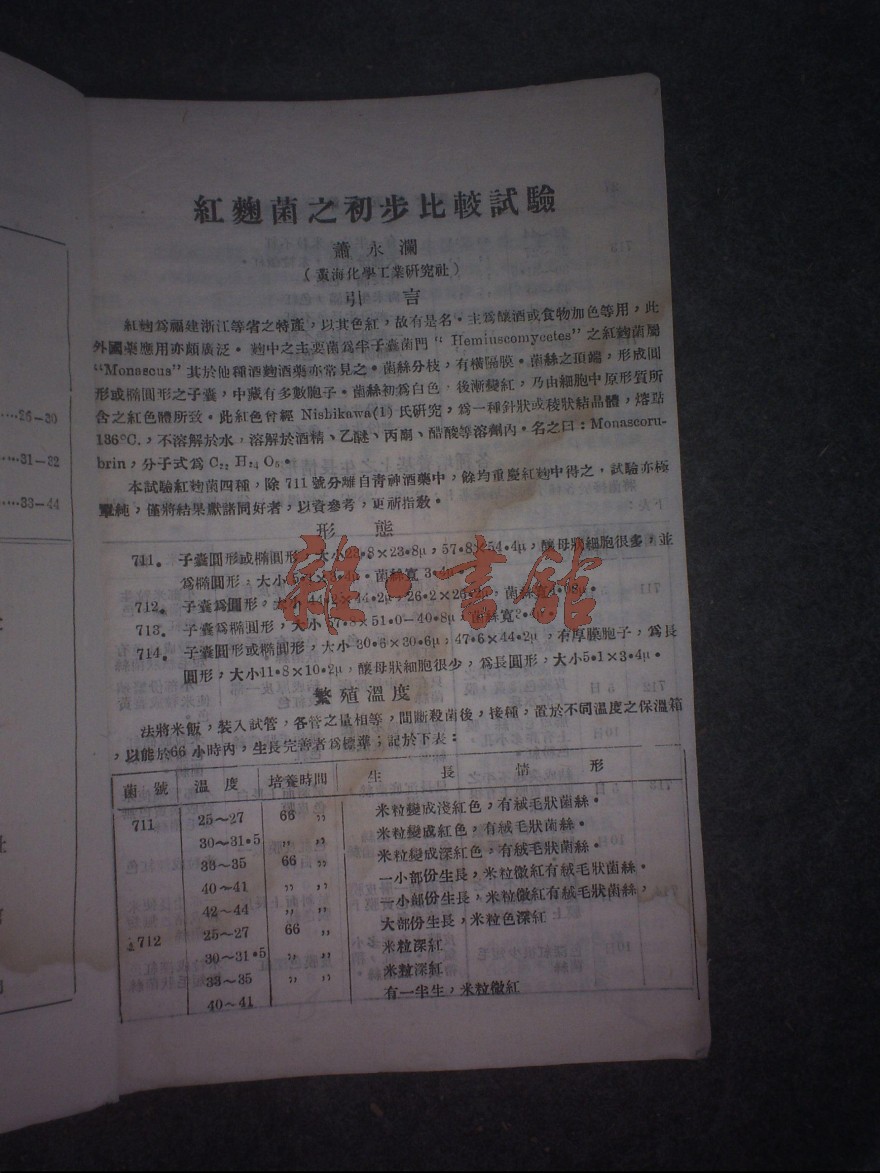 紅麴菌之初步比較試驗
蕭永瀾
(黃海化學工業研究社)
引 言
紅麴爲福建浙江等省之特產,以其色紅,故有是名。主爲釀酒或食物加色等用,此
外國藥應用亦頗廣泛。麴中之主要菌爲半子囊菌門“Hemiascomycetes”之紅麴菌屬
“Monascus”其於他種酒麴酒藥亦常見之。菌絲分枝,有橫隔膜。菌絲之頂端,形成圓
形或橢圓形之子囊,中藏有多數胞子。菌絲初爲白色,後漸變紅,乃由細胞中原形質所
含之紅色體所致。此紅色曾經 Nishikawa(1) 氏研究,爲一種針狀或稜狀結晶體,熔點
136°C.,不溶解於水,溶解於酒精、乙醚、丙酮、醋酸等溶劑內。名之曰:Monascoru-
brin,分子式爲 C₂₂ H₂₄ O₅。
本試驗紅麴菌四種,除 711 號分離自青神酒藥中,餘均重慶紅麴中得之,試驗亦極
單純,僅將結果獻諸同好者,以資參考,更祈指教。
形 態
711. 子囊圓形或橢圓形,大小23·8×23·8μ,57·8×54·4μ,釀母狀細胞很多,並
爲橢圓形,大小 菌絲寬 3·4μ。
712. 子囊爲圓形,大小44·2×44·2μ,26·2×26·2μ,菌絲寬
713. 子囊爲橢圓形,大小 ×51·0—40·8μ,菌絲寬
714. 子囊圓形或橢圓形,大小 30·6×30·6μ,47·6×44·2μ,有厚膜胞子,爲長
圓形,大小11·8×10·2μ,釀母狀細胞很少,爲長圓形,大小5·1×3·4μ。
繁殖溫度
法將米飯,裝入試管,各管之量相等,間斷殺菌後,接種,置於不同溫度之保溫箱
,以能於66小時內,生長完善者爲標準;記於下表:
菌 號 溫 度 培養時間 生 長 情 形
711 25~27 66 „ 米粒變成淺紅色,有絨毛狀菌絲。
30~31·5 „ „ 米粒變成紅色,有絨毛狀菌絲。
33~35 66 „ 米粒變成深紅色,有絨毛狀菌絲。
40~41 „ „ 一小部份生長,米粒微紅有絨毛狀菌絲。
42~44 „ „ 一小部份生長,米粒微紅有絨毛狀菌絲,
712 25~27 66 „ 大部份生長,米粒色深紅
30~31·5 „ „ 米粒深紅
33~35 „ „ 米粒深紅
40~41 有一半生,米粒微紅
雜·書館
26-30
31-32
33-44